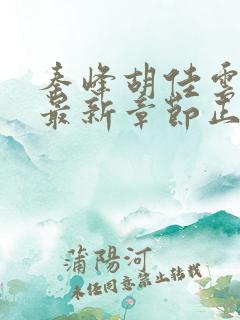 秦峰胡佳雪
最新章節正
蒲陽河
未经同意禁止转载